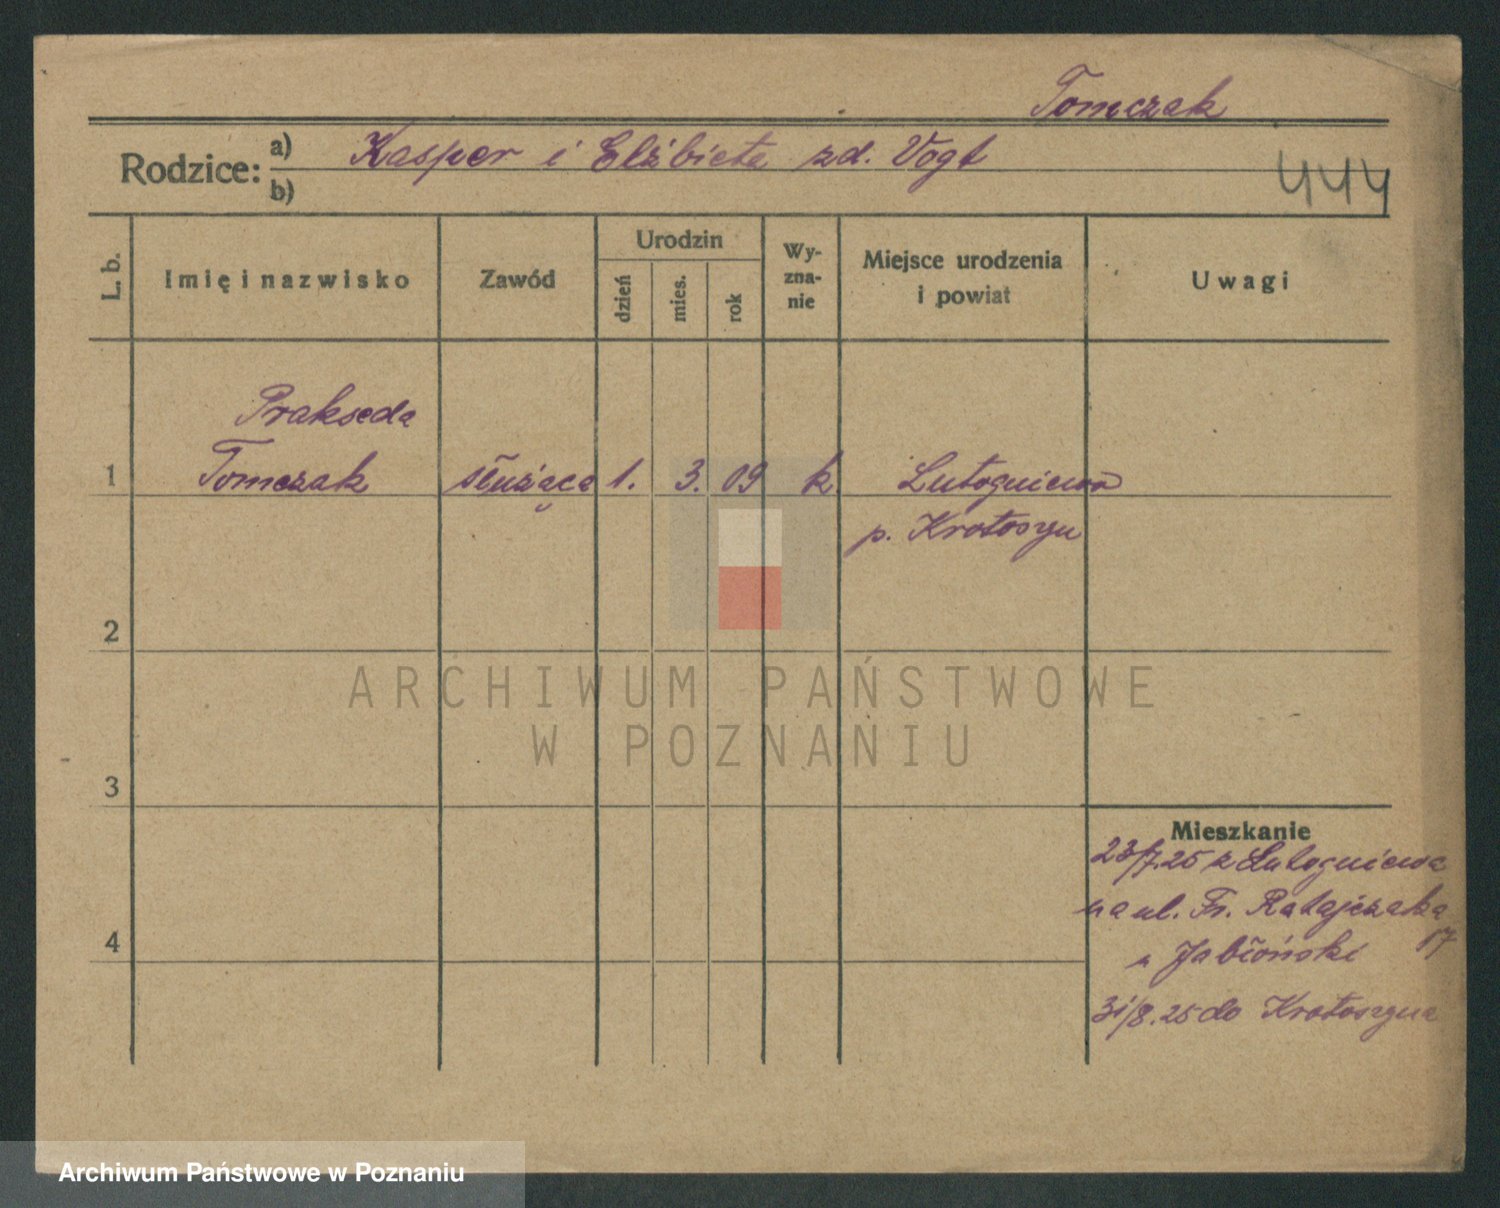 Tomczak
Rodzice: a) Kasper i Elżbieta zd. Vogt
b)
444
L. b.
Imię i nazwisko
Zawód
Urodzin
dzień
mies.
rok
Wy-
zna-
nie
Miejsce urodzenia
i powiat
Uwagi
Prakseda
1 Tomczak służąca 1. 3. 09 k. Lutogniewo
p. Krotoszyn
2
3
4
Mieszkanie
23/7.25 z Lutogniewa
na ul. Fr. Ratajczaka
17
u Jabłoński
31/8.25 do Krotoszyna
ARCHIWUM PAŃSTWOWE
W POZNANIU
Archiwum Państwowe w Poznaniu